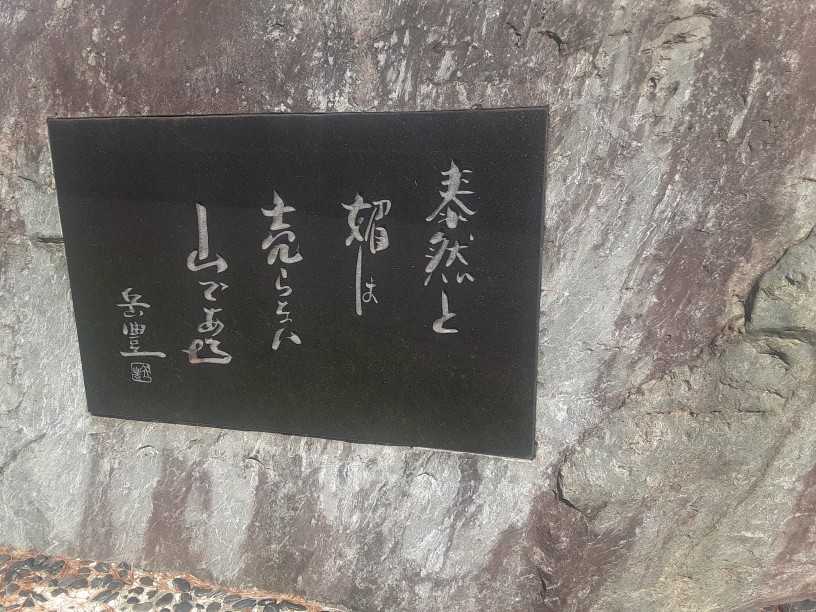 泰然と
媚は
売らない
山である
岳豊